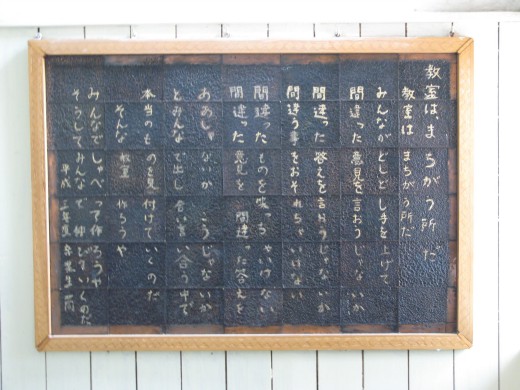 教室は、まちがう所だ
教室は まちがう所だ
みんながどしどし手を上げて
間違った意見を言おうじゃないか
間違った答えを言おうじゃないか
間違う事をおそれちゃいけない
間違ったものを笑っちゃいけない
間違った意見を 間違った答えを
ああじゃないか こうじゃないか
とみんなで出し合い言い合う中で
本当のものを見付けていくのだ
そんな教室作ろうや
みんなでしゃべって作ろうや
そうしてみんなで伸びていくのだ
平成 年度 卒業生一同